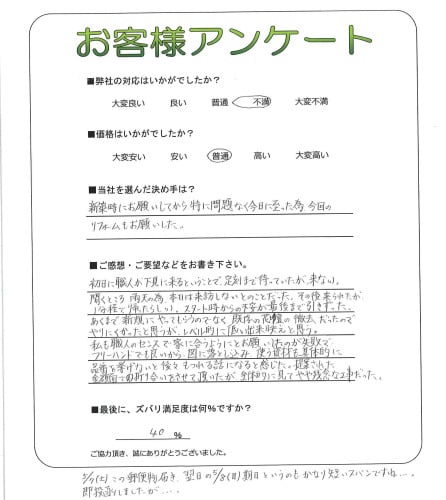 お客様アンケート
■弊社の対応はいかがでしたか?
大変良い 良い 普通 不満 大変不満
■価格はいかがでしたか?
大変安い 安い 普通 高い 大変高い
■当社を選んだ決め手は?
新築時にお願いしてから特に問題なく今日に至った為、今回の
リフォームもお願いした。
■ご感想・ご要望などをお書き下さい。
初日に職人が下見に来るということで、定刻まで待っていたが、来ない。
聞くところ、雨天の為、本日は来訪しないとのことだった。その後来られたが、
1分程で帰たらしい。スタート時からの不安が最後まで引きずった。
あくまで新規にやってもらうのでなく、既存の の撤去だったので
やりにくかったと思うが、レベル的に低い出来映えと思う。
私も職人のセンスで家に合うようにとお願いしたのが失敗で
フリーハンドでも良いから、図に落とし込み、使う資材も具体的に
品番を挙げないと後々もつれる話になると感じた。提案された
金額面で折り合いをさせて頂いたが、全体的に見てやや残念な工事だった。
■最後に、ズバリ満足度は何%ですか?
40 %
ご協力頂き、誠にありがとうございました。
5/7(土)この郵便物届き、翌日の5/8(日)期日というのもかなり短いスパンですね…。
即投函しましたが…。